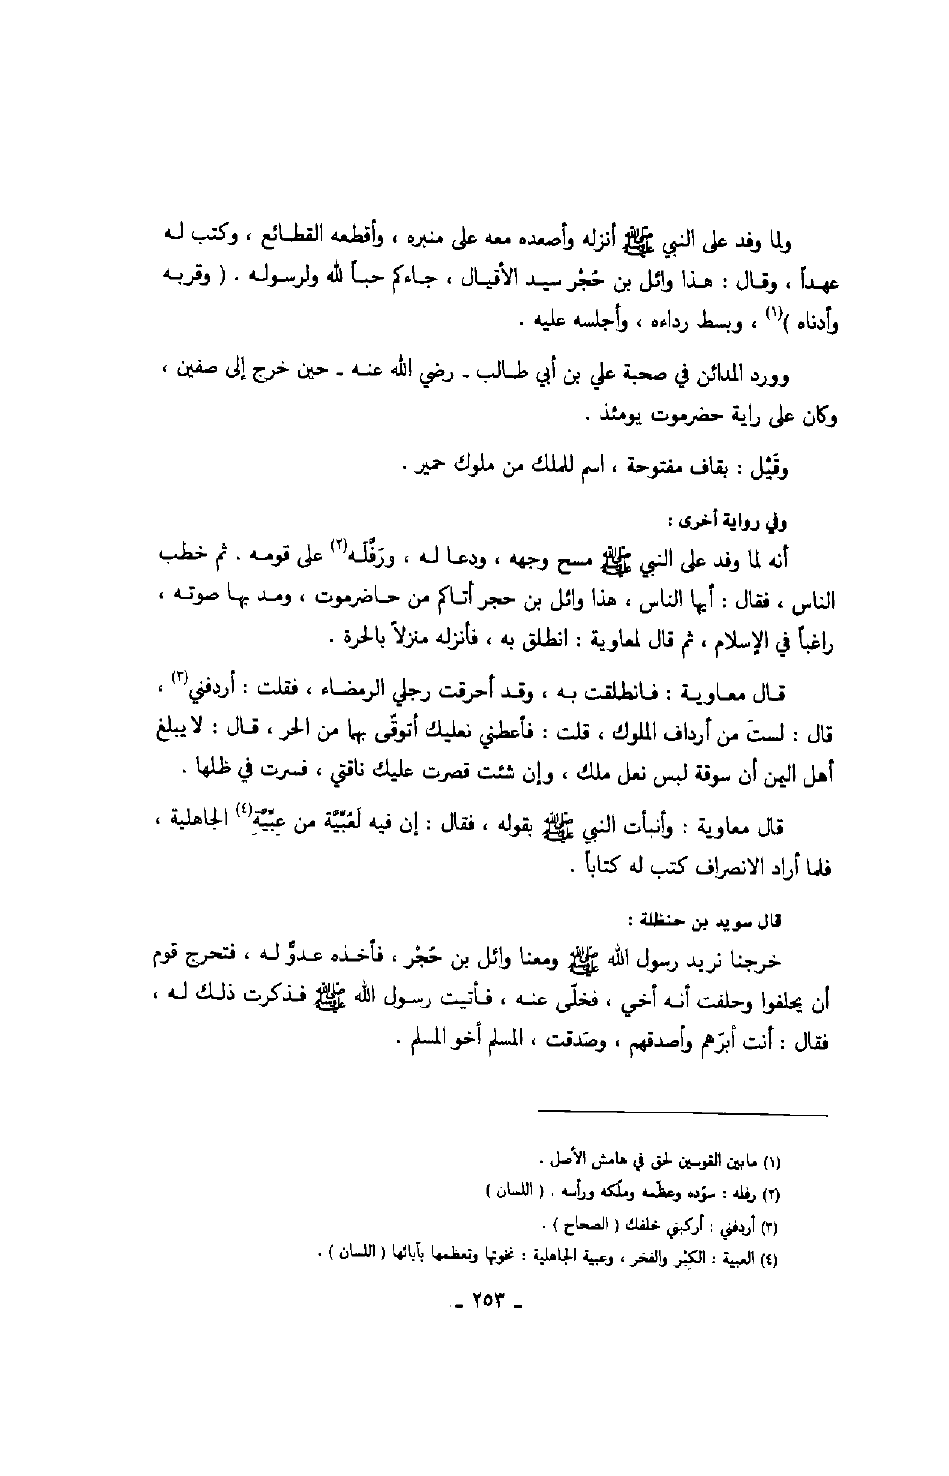 ولما وفد على النبي ﷺ أنزله وأصعده معه على منبره ، وأقطعه القطائع ، وكتب له
عهداً ، وقال : هذا وائل بن حُجْر سيد الأقيال ، جاءكم حباً لله ولرسوله . ( وقربه
وأدناه )(١) ، وبسط رداءه ، وأجلسه عليه .
وورد المدائن في صحبة علي بن أبي طالب ـ رضي الله عنه ـ حين خرج إلى صفين ،
وكان على راية حضرموت يومئذ .
وقَيْل : بقاف مفتوحة ، اسم للملك من ملوك حمير .
وفي رواية أخرى :
أنه لما وفد على النبي ﷺ مسح وجهه ، ودعا له ، ورَفَّلَه(٢) على قومه . ثم خطب
الناس ، فقال : أيها الناس ، هذا وائل بن حجر أتاكم من حاضرموت ، ومد بها صوته ،
راغباً في الإسلام ، ثم قال لمعاوية : انطلق به ، فأنزله منزلاً بالحرة .
قال معاوية : فانطلقت به ، وقد أحرقت رجلي الرمضاء ، فقلت : أردفني(٣) ،
قال : لستَ من أرداف الملوك ، قلت : فأعطني نعليك أتوقّى بها من الحر ، قال : لا يبلغ
أهل اليمن أن سوقة لبس نعل ملك ، وإن شئت قصرت عليك ناقتي ، فسرت في ظلها .
قال معاوية : وأنبأت النبي ﷺ بقوله ، فقال : إن فيه لَعُبِّيَّة من عِبِّيَّةِ(٤) الجاهلية ،
فلما أراد الانصراف كتب له كتاباً .
قال سويد بن حنظلة :
خرجنا نريد رسول الله ﷺ ومعنا وائل بن حُجْر ، فأخذه عدوٌّ له ، فتحرج قوم
أن يحلفوا وحلفت أنه أخي ، فخلّى عنه ، فأتيت رسول الله ﷺ فذكرت ذلك له ،
فقال : أنت أبرّهم وأصدقهم ، وصَدقت ، المسلم أخو المسلم .
(١) مابين القوسين لحق في هامش الأصل .
(٢) رفله : سوّده وعظّمه وملّكه ورأسه . ( اللسان )
(٣) أردفني : أركبني خلفك ( الصحاح ) .
(٤) العبية : الكِبْر والفخر ، وعبية الجاهلية : نخوتها وتعظمها بآبائها ( اللسان ) .
ـ ٢٥٣ ـ